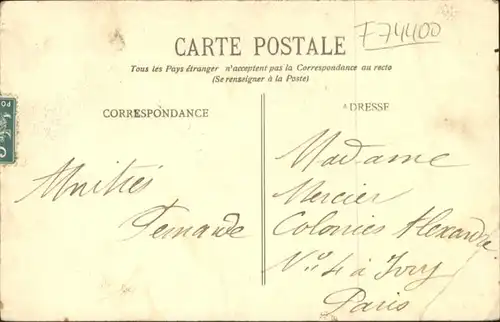 F74400
CARTE POSTALE
Tous les Pays étranger n'acceptent pas la Correspondance au recto
(Se renseigner à la Poste)
CORRESPONDANCE
ADRESSE
Amitiés
Fernande
Madame
Mercier
Colonies Alexandre
N° 4 à Ivry
Paris